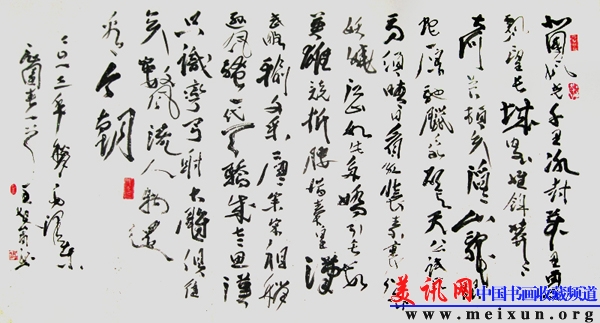 北國风光千里冰封萬里雪
飘望长城内外惟餘莽莽
大河上下顿失滔滔山舞银
蛇原驰蠟象欲與天公试比
高须晴日看红装素裹分外
妖娆江山如此多娇引无数
英雄竞折腰惜秦皇漢
武略输文采唐宗宋祖稍
逊风骚一代天骄成吉思漢
只識弯弓射大雕俱往
矣数风流人物还
看今朝
二〇一三年 毛泽东
沁园春一雪
美讯网 中国书画收藏频道
www.meixun.org